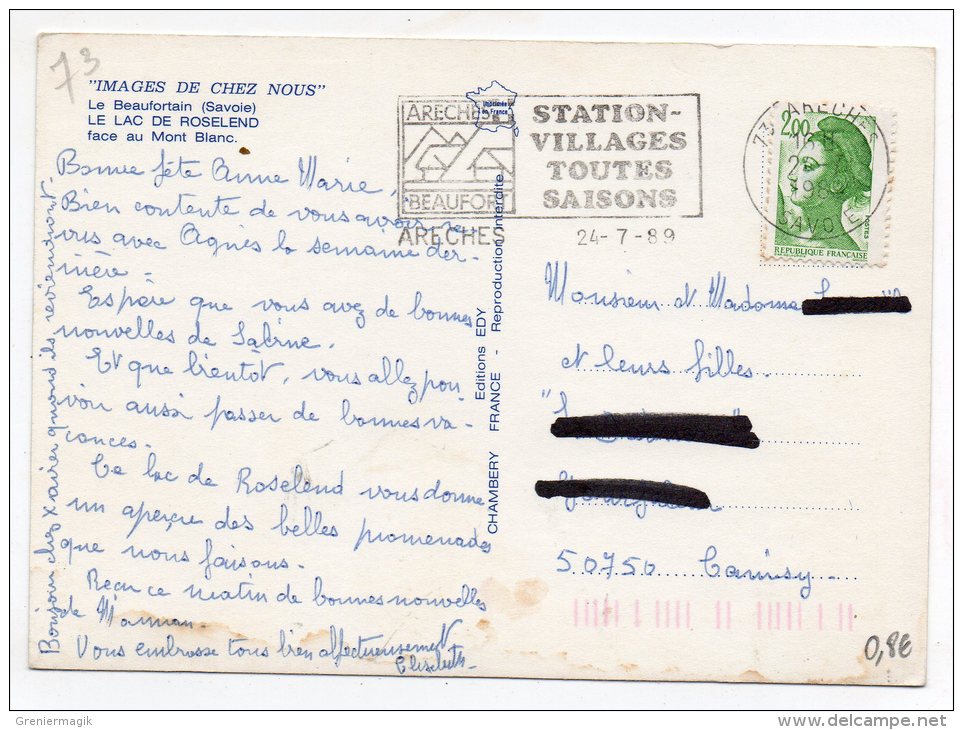 73
"IMAGES DE CHEZ NOUS"
Le Beaufortain (Savoie)
LE LAC DE ROSELEND
face au Mont Blanc.
Imprimée
en France
ARECHES
BEAUFORT
STATION-
VILLAGES
TOUTES
SAISONS
ARECHES
24-7-89
73 ARECHES
SAVOIE
2,00
REPUBLIQUE FRANÇAISE
POSTES
Bonne fête Anne Marie,
Bien contente de vous avoir re-
vus avec Agnès la semaine der-
nière.
Espère que vous avez de bonnes
nouvelles de Sabine.
Et que bientôt, vous allez pou-
voir aussi passer de bonnes va-
cances.
Ce lac de Roselend vous donne
un aperçu des belles promenades
que nous faisons.
Reçu ce matin de bonnes nouvelles
de Maman.
Vous embrasse tous bien affectueusement
Elisabeth
Bonjour chez X airer quand ils reviendront.
CHAMBERY Editions EDY
FRANCE - Reproduction interdite
Monsieur et Madame
et leurs filles.
50750 Canisy
0,8€
Greniermagik
www.delcampe.net